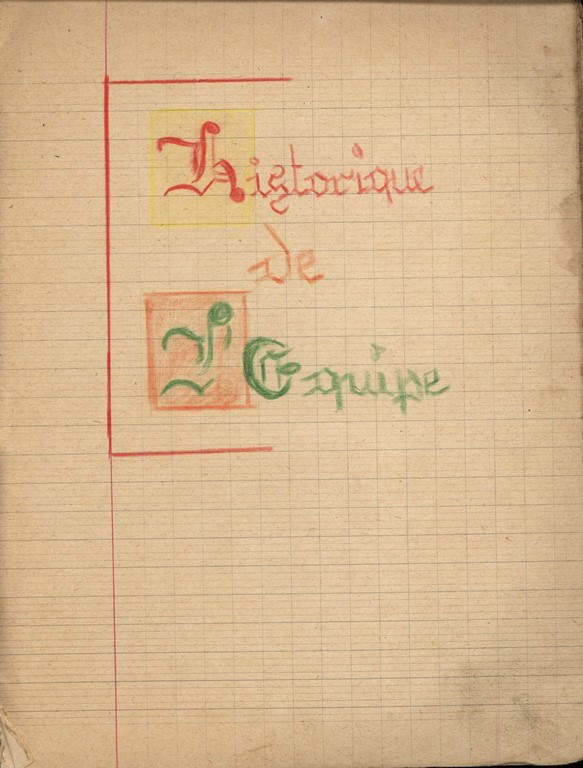 Historique
de
L'Equipe